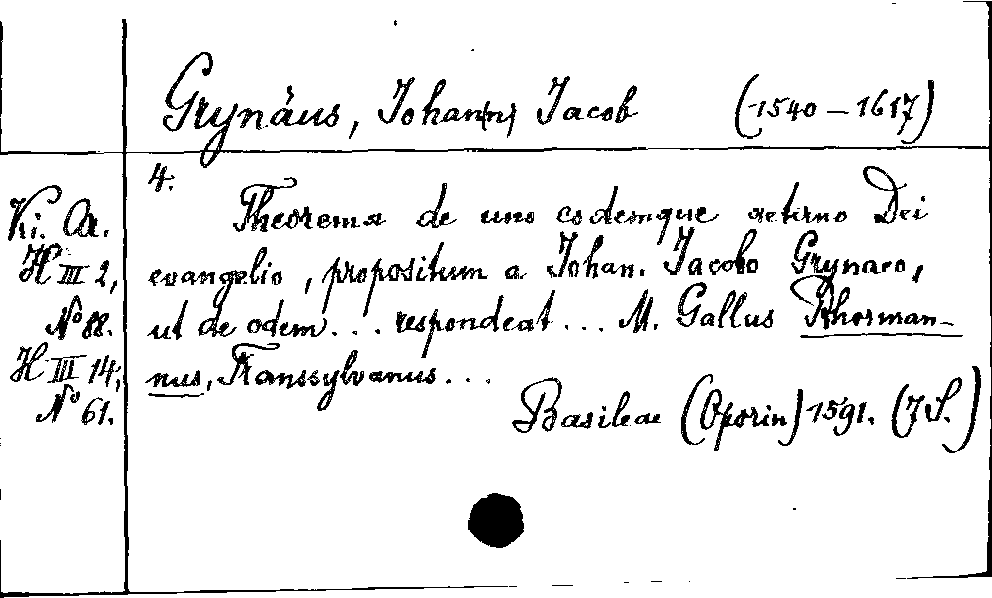 Grynäus, Johan(n) Jacob (1540–1617)
4.
Ki. Ar.
H III 2,
No 88.
H III 14,
No 61.
Theorema de uno eodemque aeterno Dei
evangelio, propositum a Johan. Jacobo Grynaeo,
ut de odem... respondeat... M. Gallus Rhorman-
nus, Transsylvanus...
Basileae (Oporin) 1591. (7 S.)